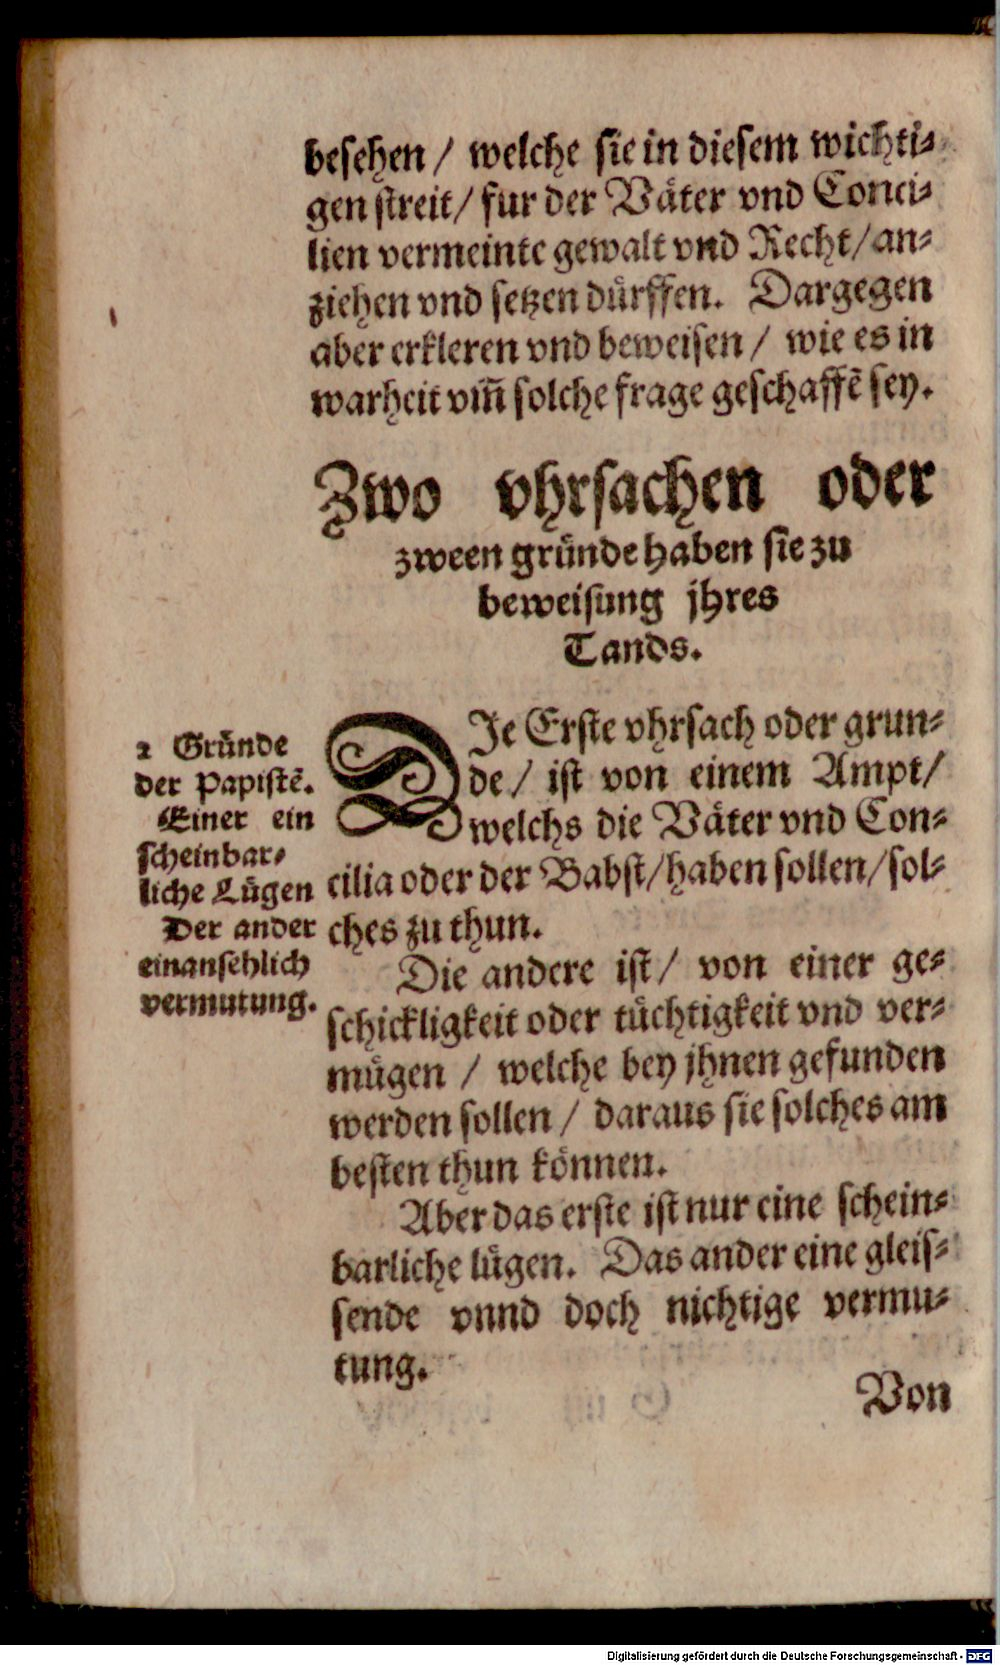 besehen / welche sie in diesem wichti-
gen streit/ fur der Väter vnd Conci-
lien vermeinte gewalt vnd Recht/ an-
ziehen vnd setzen dürffen. Dargegen
aber erkleren vnd beweisen / wie es in
warheit vm̃ solche frage geschaffẽ sey.
Zwo vhrsachen oder
zween gründe haben sie zu
beweisung jhres
Tands.
2 Gründe
der Papistẽ.
Einer ein
scheinbar-
liche Lügen
Der ander
einansehlich
vermutung.
DIe Erste vhrsach oder grun-
de/ ist von einem Ampt/
welchs die Väter vnd Con-
cilia oder der Babst/haben sollen/sol-
ches zu thun.
Die andere ist/ von einer ge-
schickligkeit oder tüchtigkeit vnd ver-
mügen / welche bey jhnen gefunden
werden sollen / daraus sie solches am
besten thun können.
Aber das erste ist nur eine schein-
barliche lügen. Das ander eine gleis-
sende vnnd doch nichtige vermu-
tung.
Von
Digitalisierung gefördert durch die Deutsche Forschungsgemeinschaft - DFG